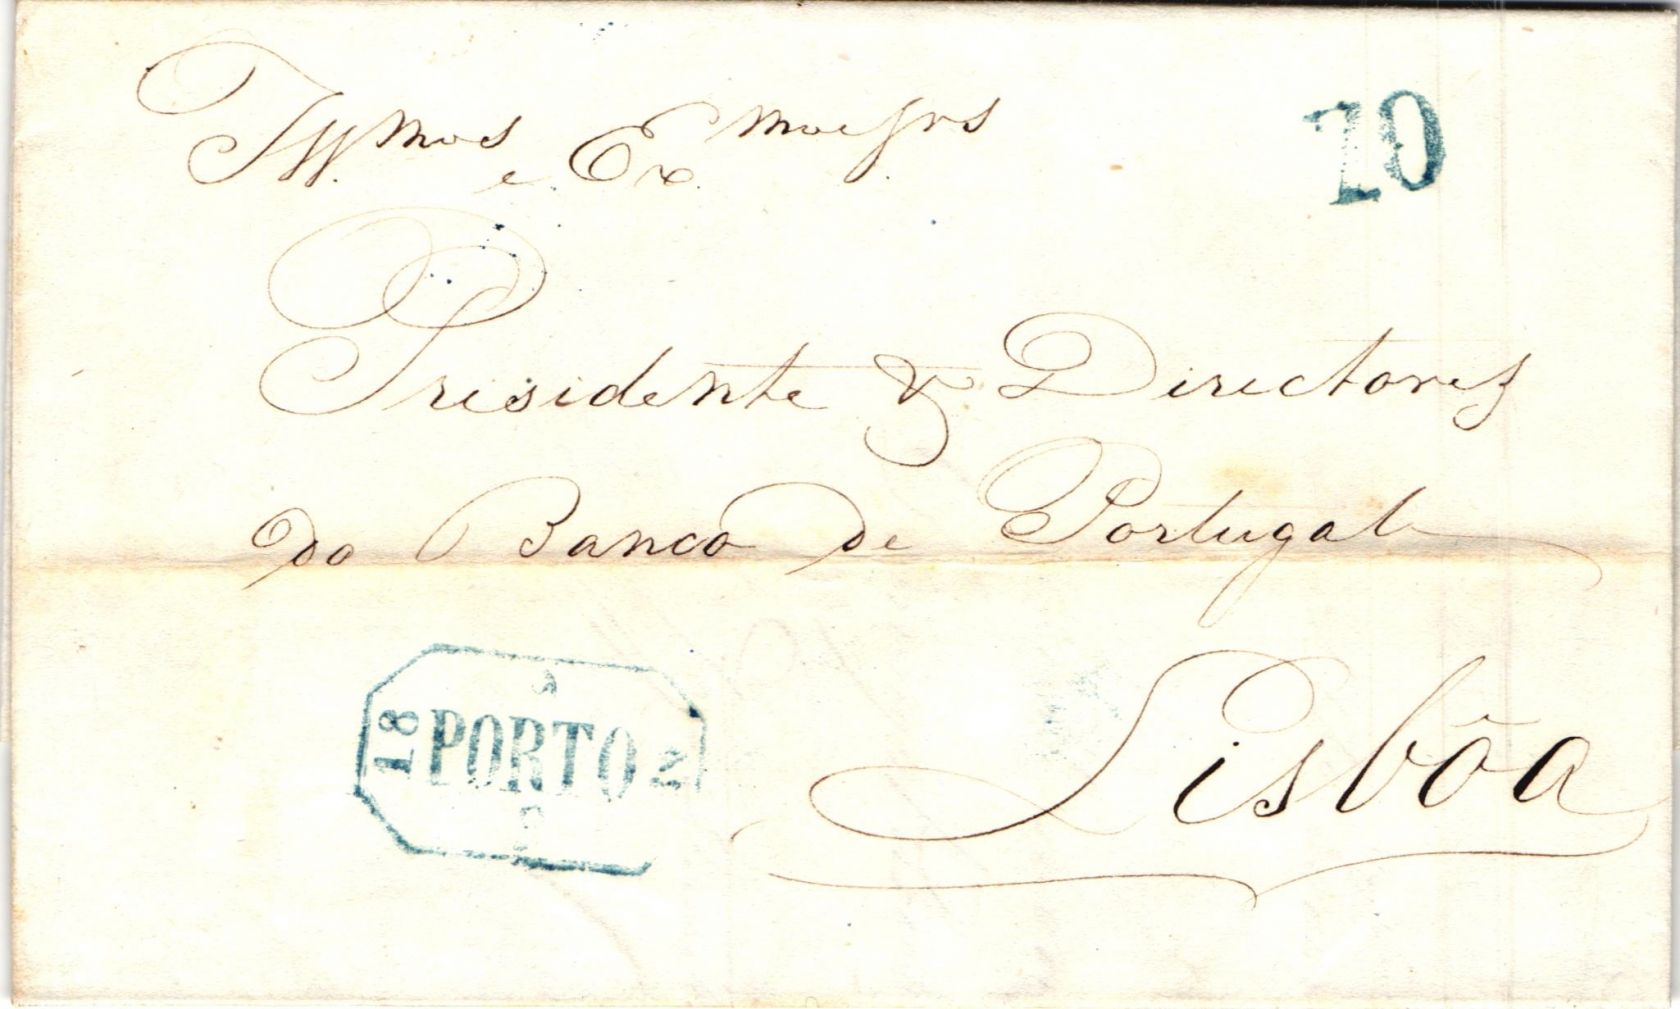 Illmos e Exmos Snrs
70
Presidente & Directores
do Banco de Portugal
18 PORTO
Lisbõa